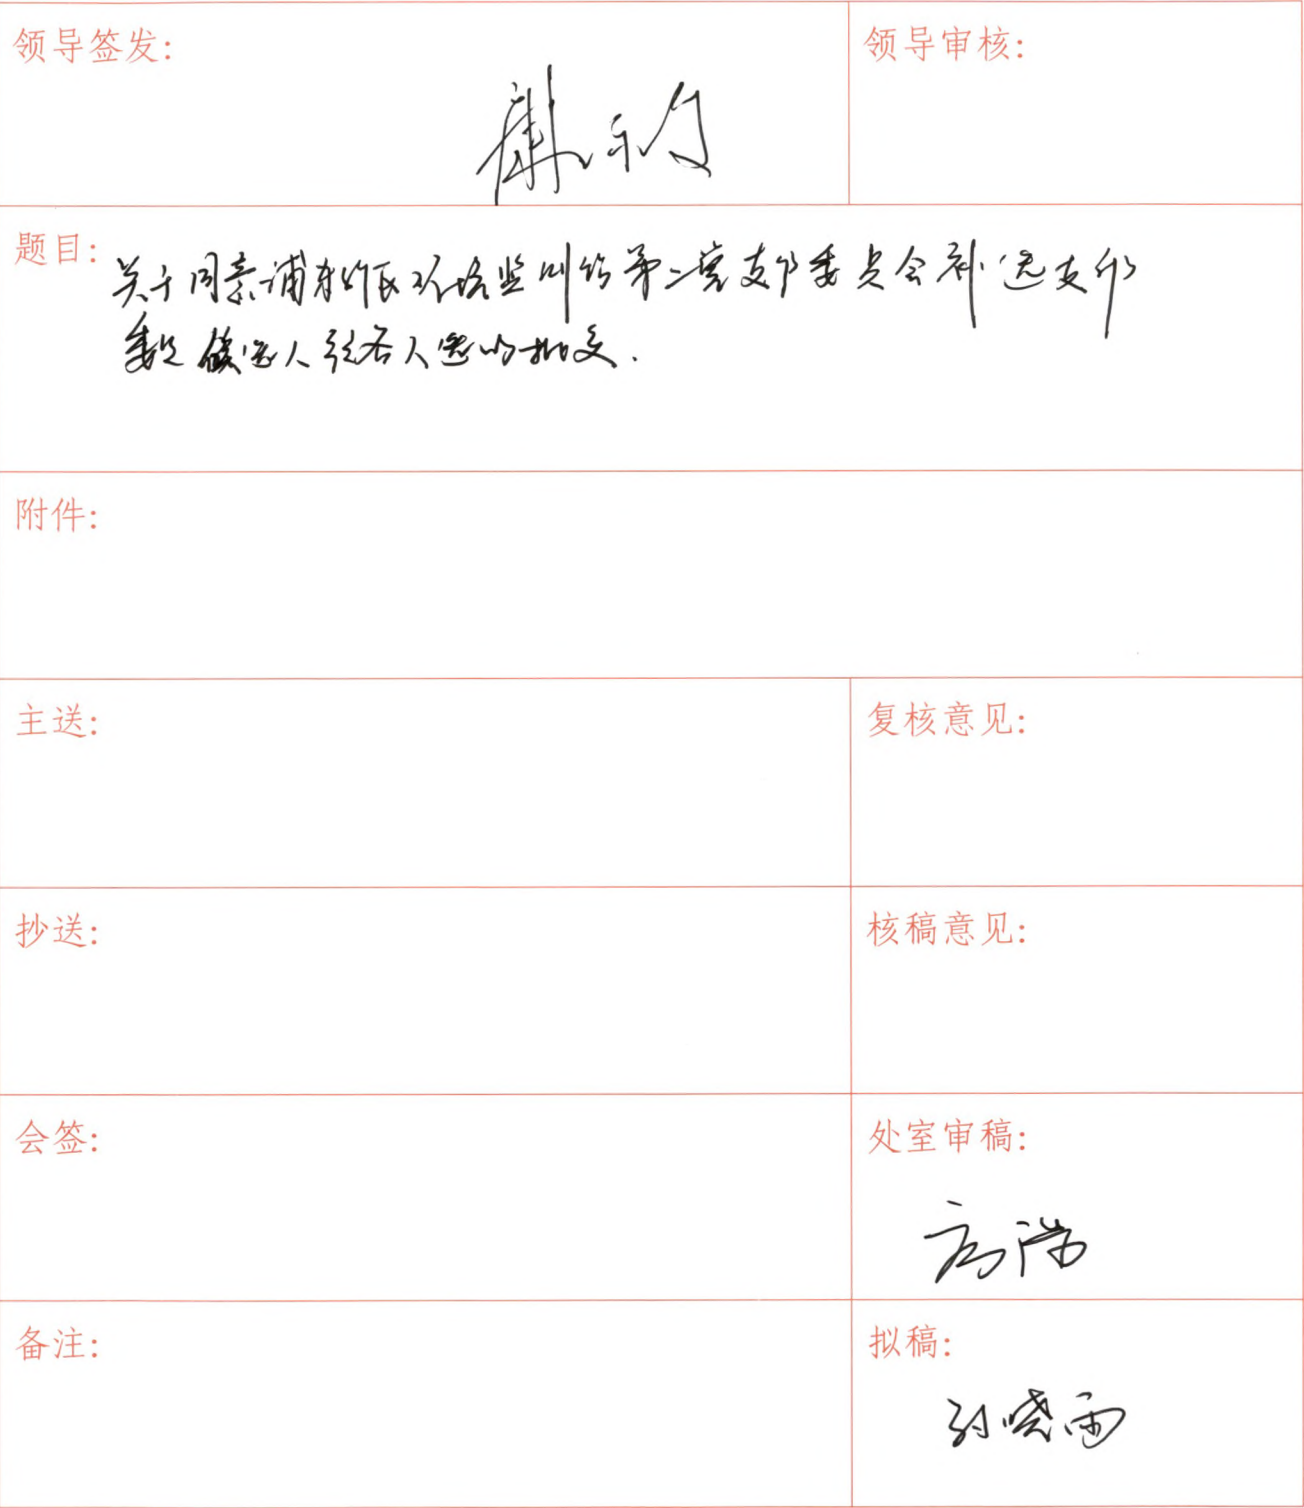 领导签发:
领导审核:
题目:
关于同意浦东新区环境监测站第二党支部委员会补选支部
委员候选人预备人选的批复.
附件:
主送:
复核意见:
抄送:
核稿意见:
会签:
处室审稿:
备注:
拟稿:
孙晓雨